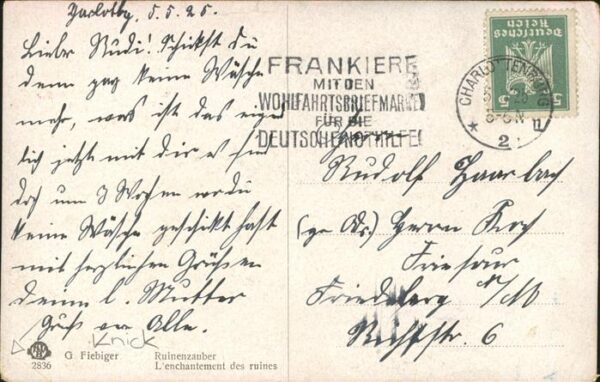 Charlotbg. 5.5.25.
Liebr Rudi! Schickst du
denn gar keine Wäsche
mehr, was ist das eigent
lich jetzt mit dir
doch um 3 Wochen
keine Wäsche geschikt hast
mit herzlichen Grüßen
deine l. Mutter
Gruß an Alle.
Knick
2836
G Fiebiger
Ruinenzauber
L'enchantement des ruines
FRANKIERE
MIT DEN
WOHLFAHRTSBRIEFMARKEN
FÜR DIE
DEUTSCHE NOTHILFE!
CHARLOTTENBURG
2
Deutsches
Reich
5 5
Rudolf Haarbach
Herrn Koch
Friseur
Friedeberg N/M
Richtstr. 6